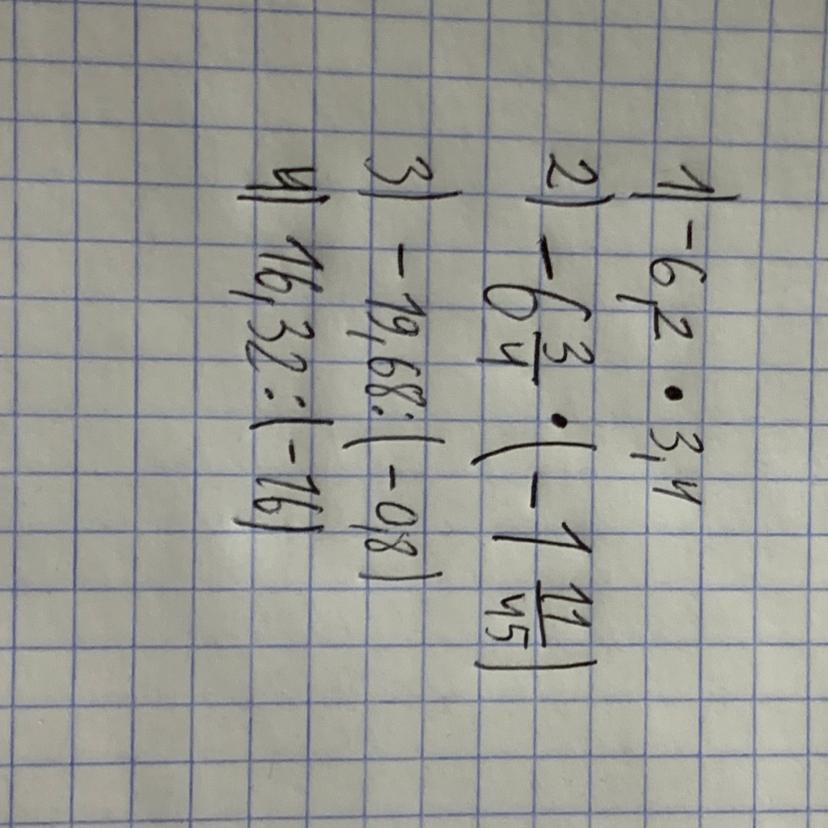 1) -6,2 · 3,4
2) -6 3/4 · (-1 11/45)
3) -19,68:(-0,8)
4) 16,32:(-16)